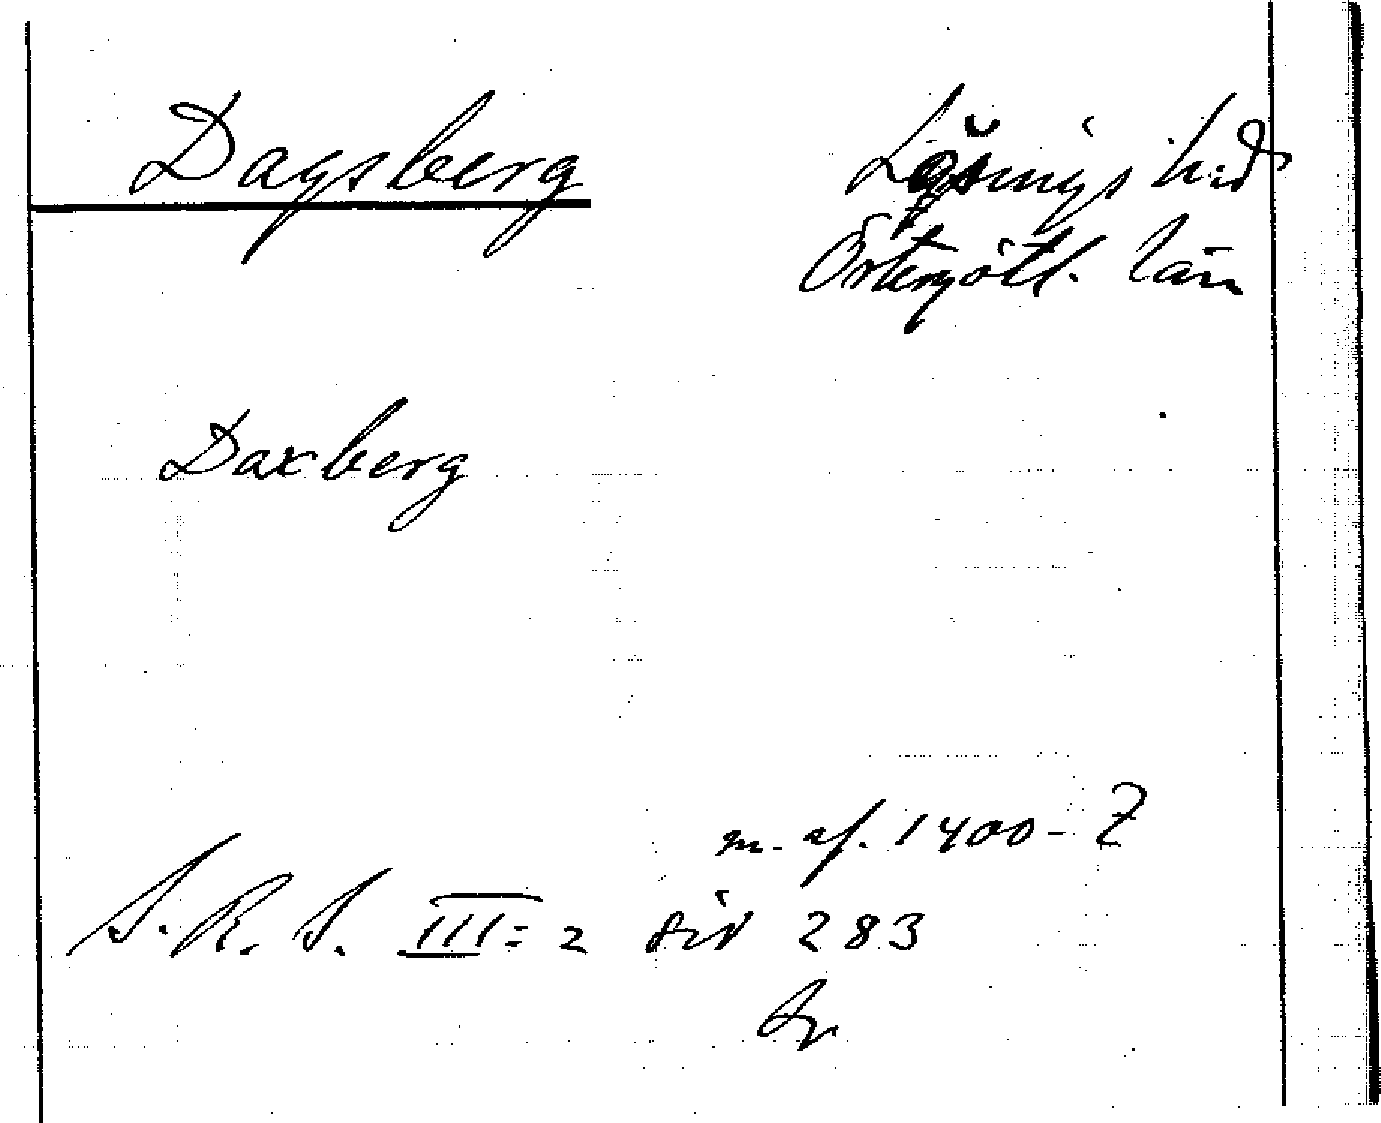 Dagsberg Lösings h:d
Östergötl. län
Daxberg
m. af. 1400- t
S. R. S. III: 2 sid 283
tr